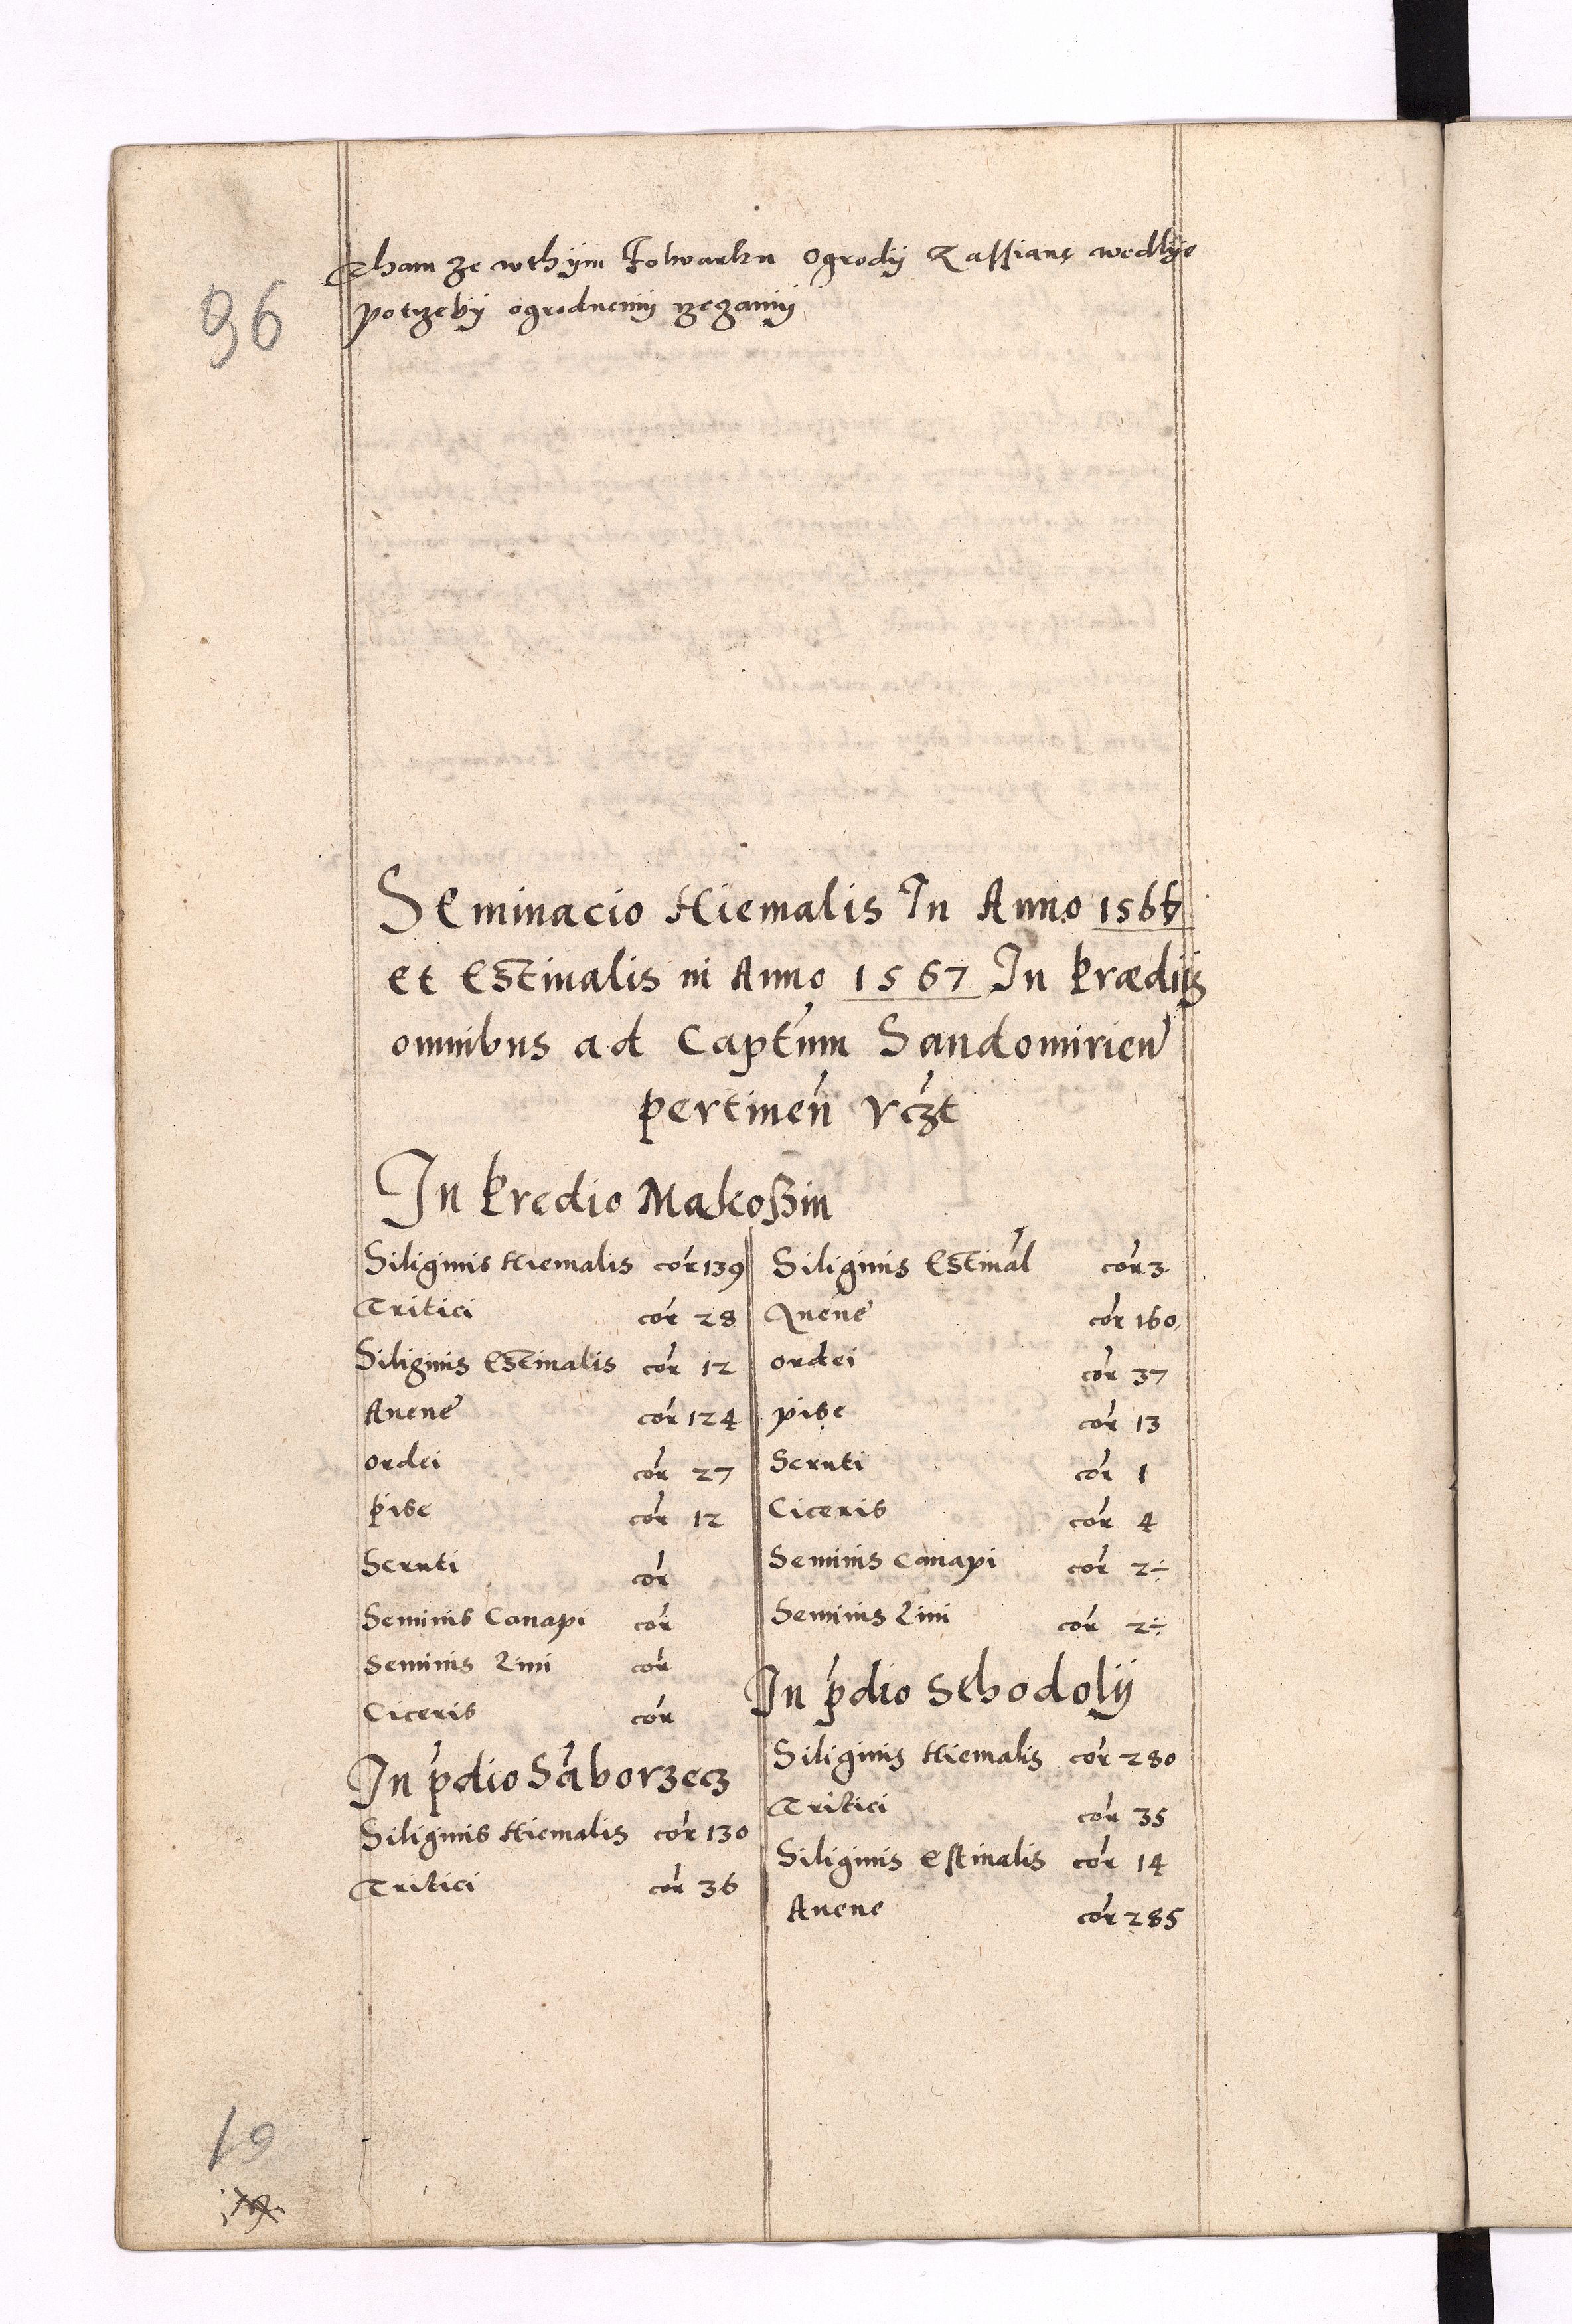 96
Tham ze wthÿm Folwarku Ogrodÿ Zassiane wedlÿe
potrzebÿ ogrodnemÿ rzeczamÿ
Seminacio Hiemalis In Anno 1566
et Estiualis in Anno 1567 In Prædijs
omnibus ad Captum Sandomirien
pertinen
In Predio Makoßin
Siliginis Hiemalis cor 139
Tritici cor 28
Siliginis Estiualis cor 12
Auene cor 124
ordei cor 27
Pise cor 12
Seruti cor
Seminis Canapi cor
Seminis Lini cor
Ciceris cor
In pdio Saborzecz
Siliginis Hiemalis cor 130
Tritici cor 36
Siliginis Estiual cor 3
Auene cor 160
ordei cor 37
pise cor 13
Seruti cor 1
Ciceris cor 4
Seminis Canapi cor 2÷
Seminis Lini cor 2÷
In pdio Schodolÿ
Siliginis Hiemalis cor 280
Tritici cor 35
Siliginis estiualis cor 14
Auene cor 285
19